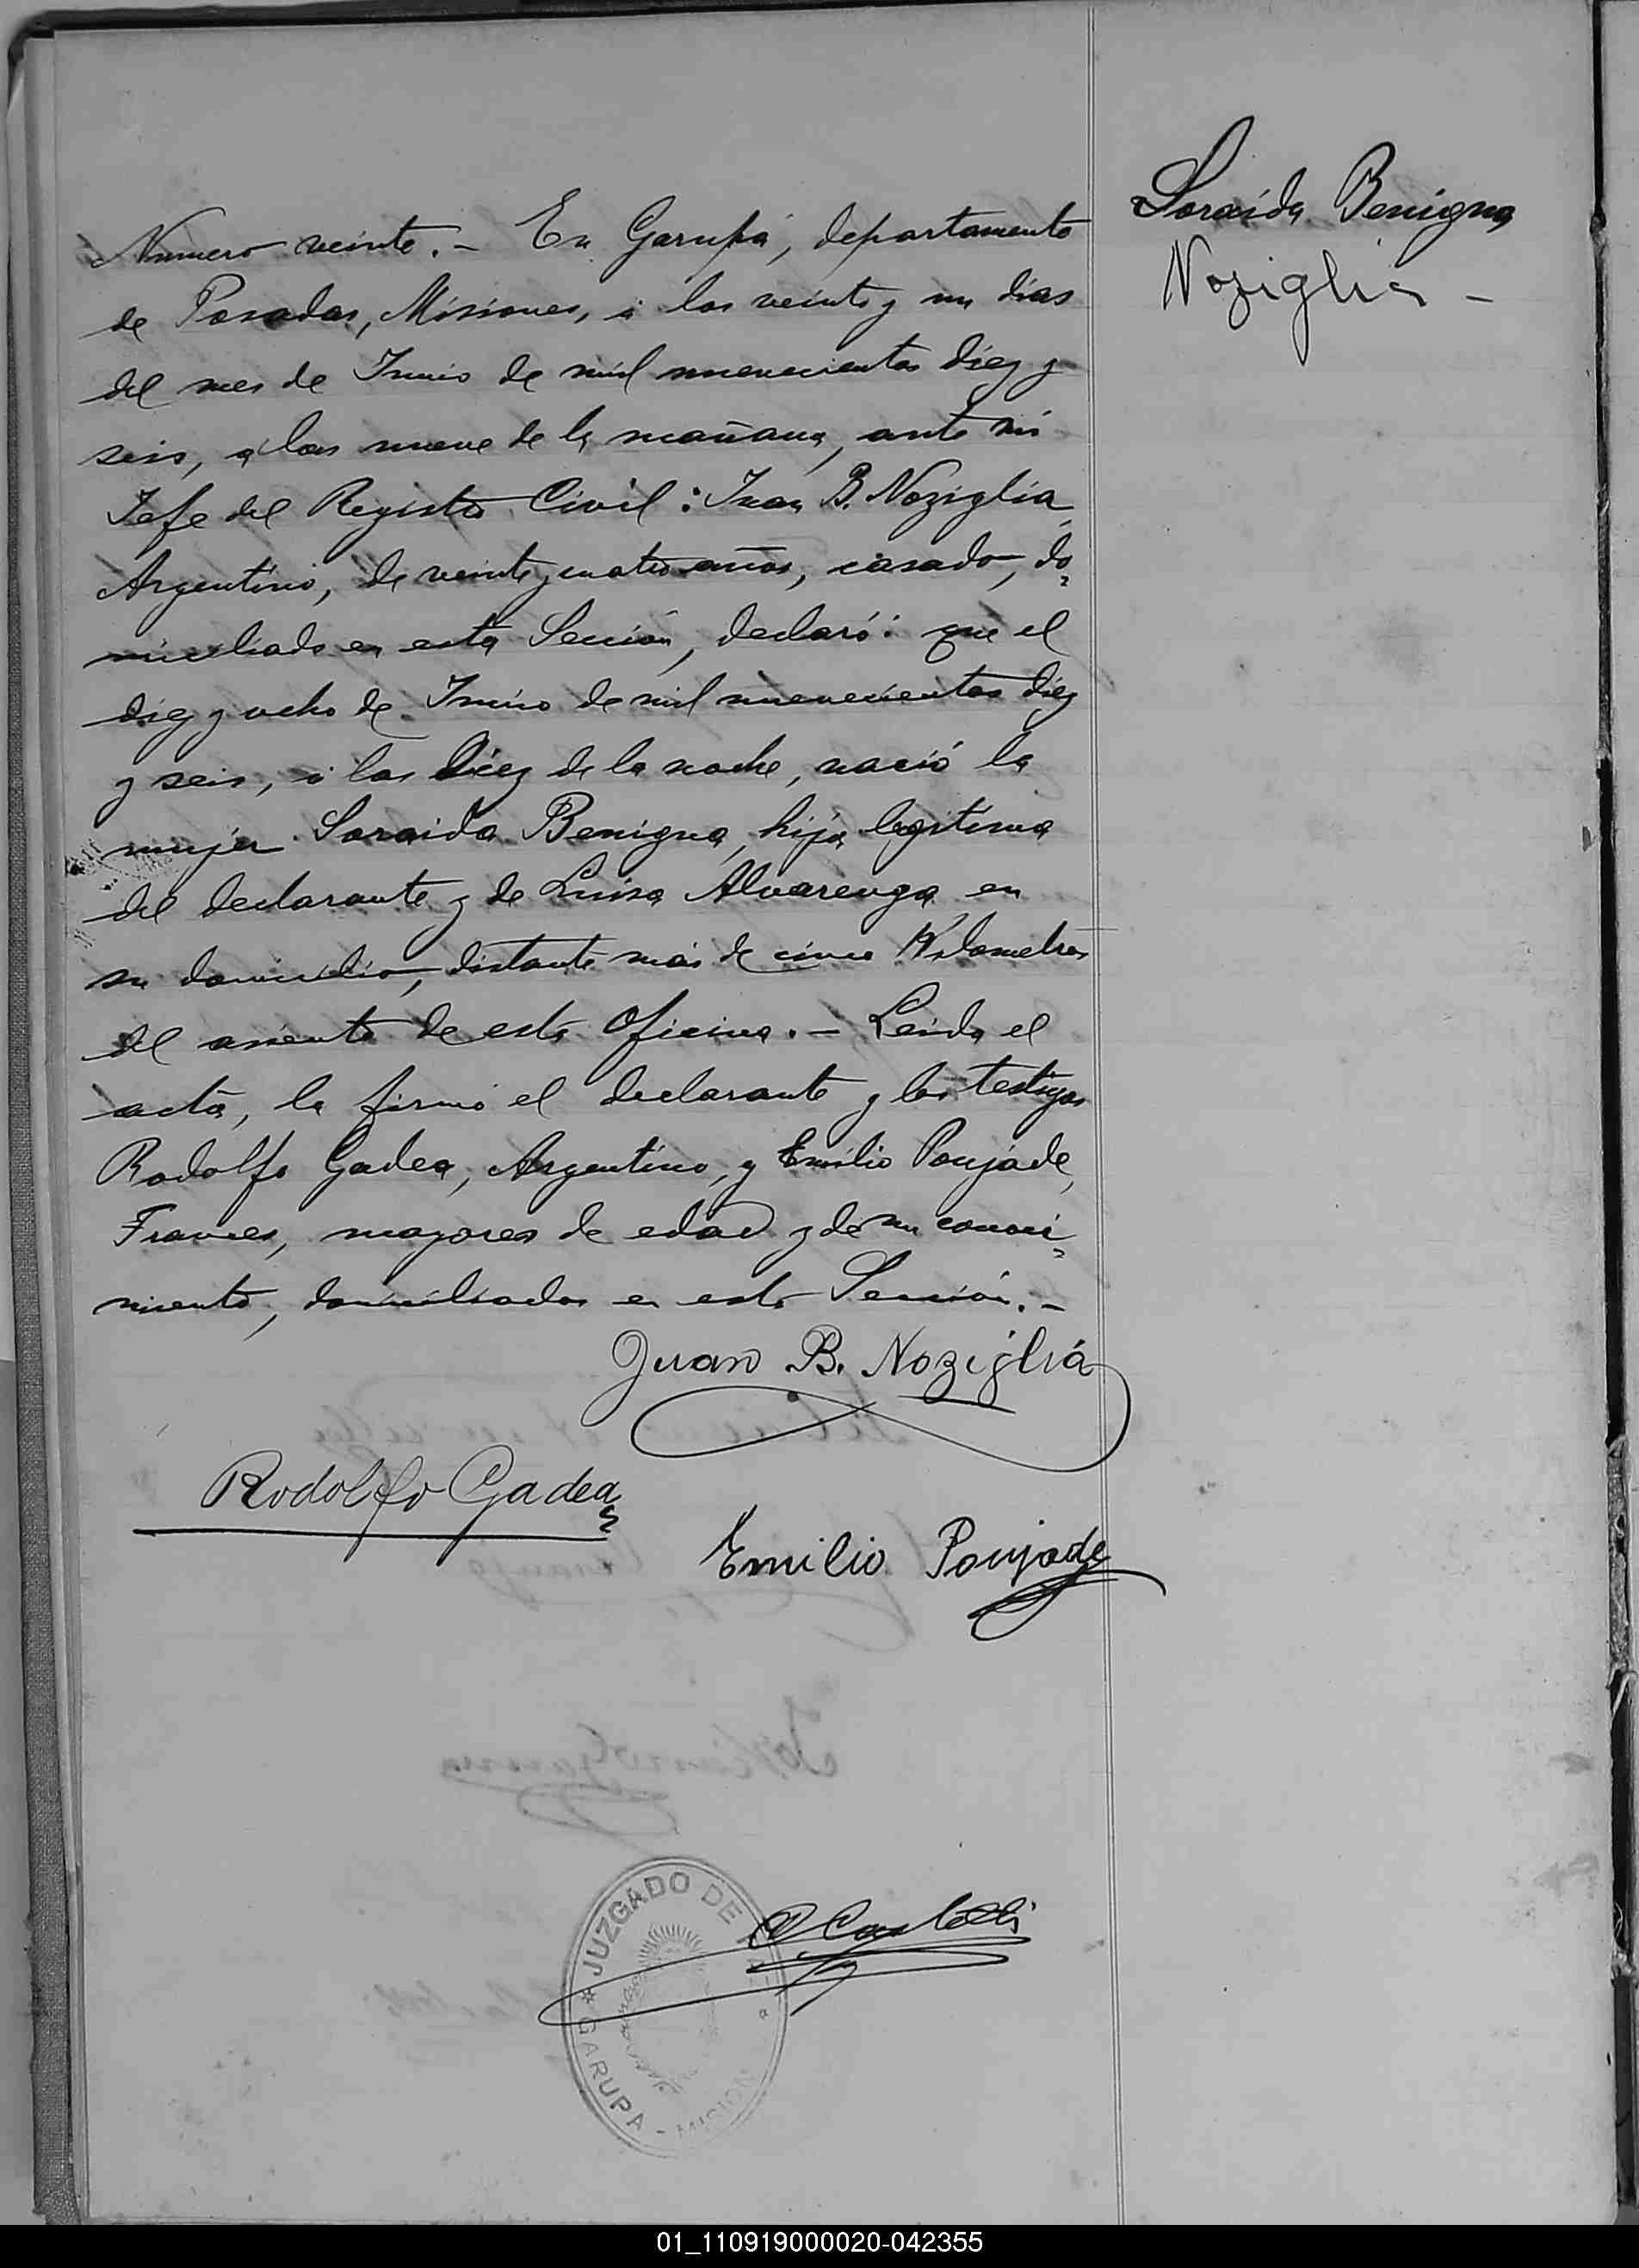 Soraida Benigna
Noziglia -
Numero veinte. - En Garupá, departamento
de Posadas, Misiones, á los veinte y un dias
del mes de Junio de mil novecientos diez y
seis, a las nueve de la mañana, ante mi
Jefe del Registro Civil: Juan B. Noziglia,
Argentino, de veinte y cuatro años, casado, do-
miciliado en esta Sección, declaró: que el
diez y ocho de Junio de mil novecientos diez
y seis, á las diez de la noche, nació la
mujer Soraida Benigna, hija legitima
del declarante y de Luisa Alvarenga en
su domicilio, distante más de cinco Kilometros
del asiento de esta Oficina. - Leida el
acta, la firmó el declarante y los testigos
Rodolfo Gadea, Argentino, y Emilio Poujade,
Frances, mayores de edad y de mi conoci-
miento, domiciliados en esta Sección. -
Juan B. Noziglia
Rodolfo Gadea
Emilio Poujade
JUZGADO DE
GARUPA - MISION
01_110919000020-042355